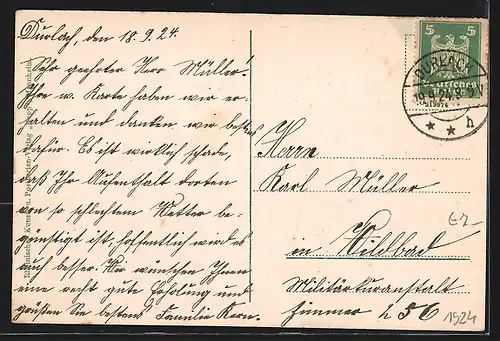 Durlach, den 18.9.24.
Sehr geehrter Herr Müller!
Ihre w. Karte haben wir er-
halten und danken wir bestens
dafür. Es ist wirklich schade,
daß Ihr Aufenthalt dorten
von so schlechtem Wetter be-
günstigt ist, hoffentlich wird es
auch besser. Wir wünschen Ihnen
eine recht gute Erholung und
grüßen Sie bestens Familie Kern.
5 5
DURLACH
19.9.24.
Herrn
Karl Müller
in Wildbad
Militärkuranstalt
Zimmer 56
1924